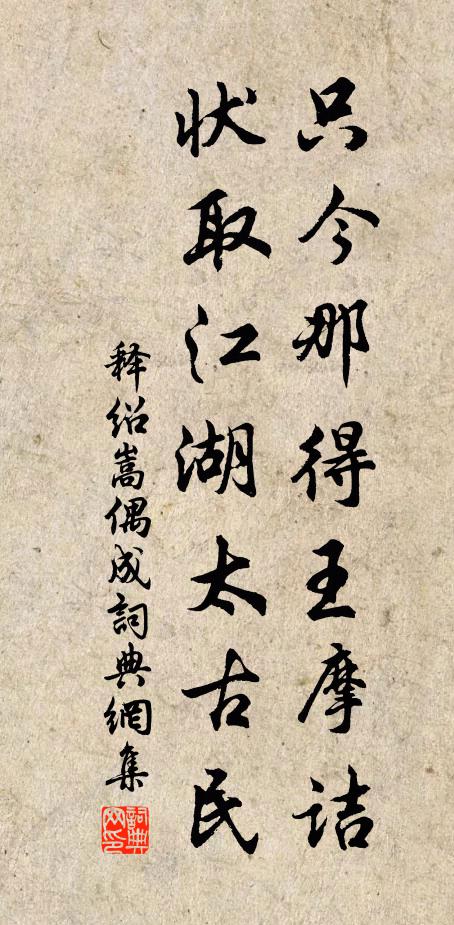 只今那得王摩诘
状取江湖太古民
释绍嵩偶成詞典網集
詞典
网印